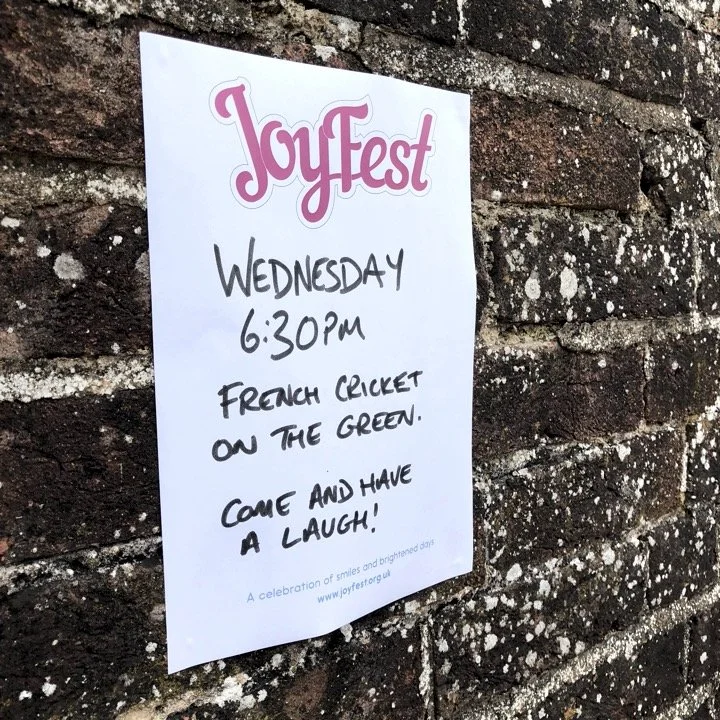 JoyFest
WEDNESDAY
6:30PM
FRENCH CRICKET
ON THE GREEN.
COME AND HAVE
A LAUGH!
A celebration of smiles and brightened days
www.joyfest.org.uk